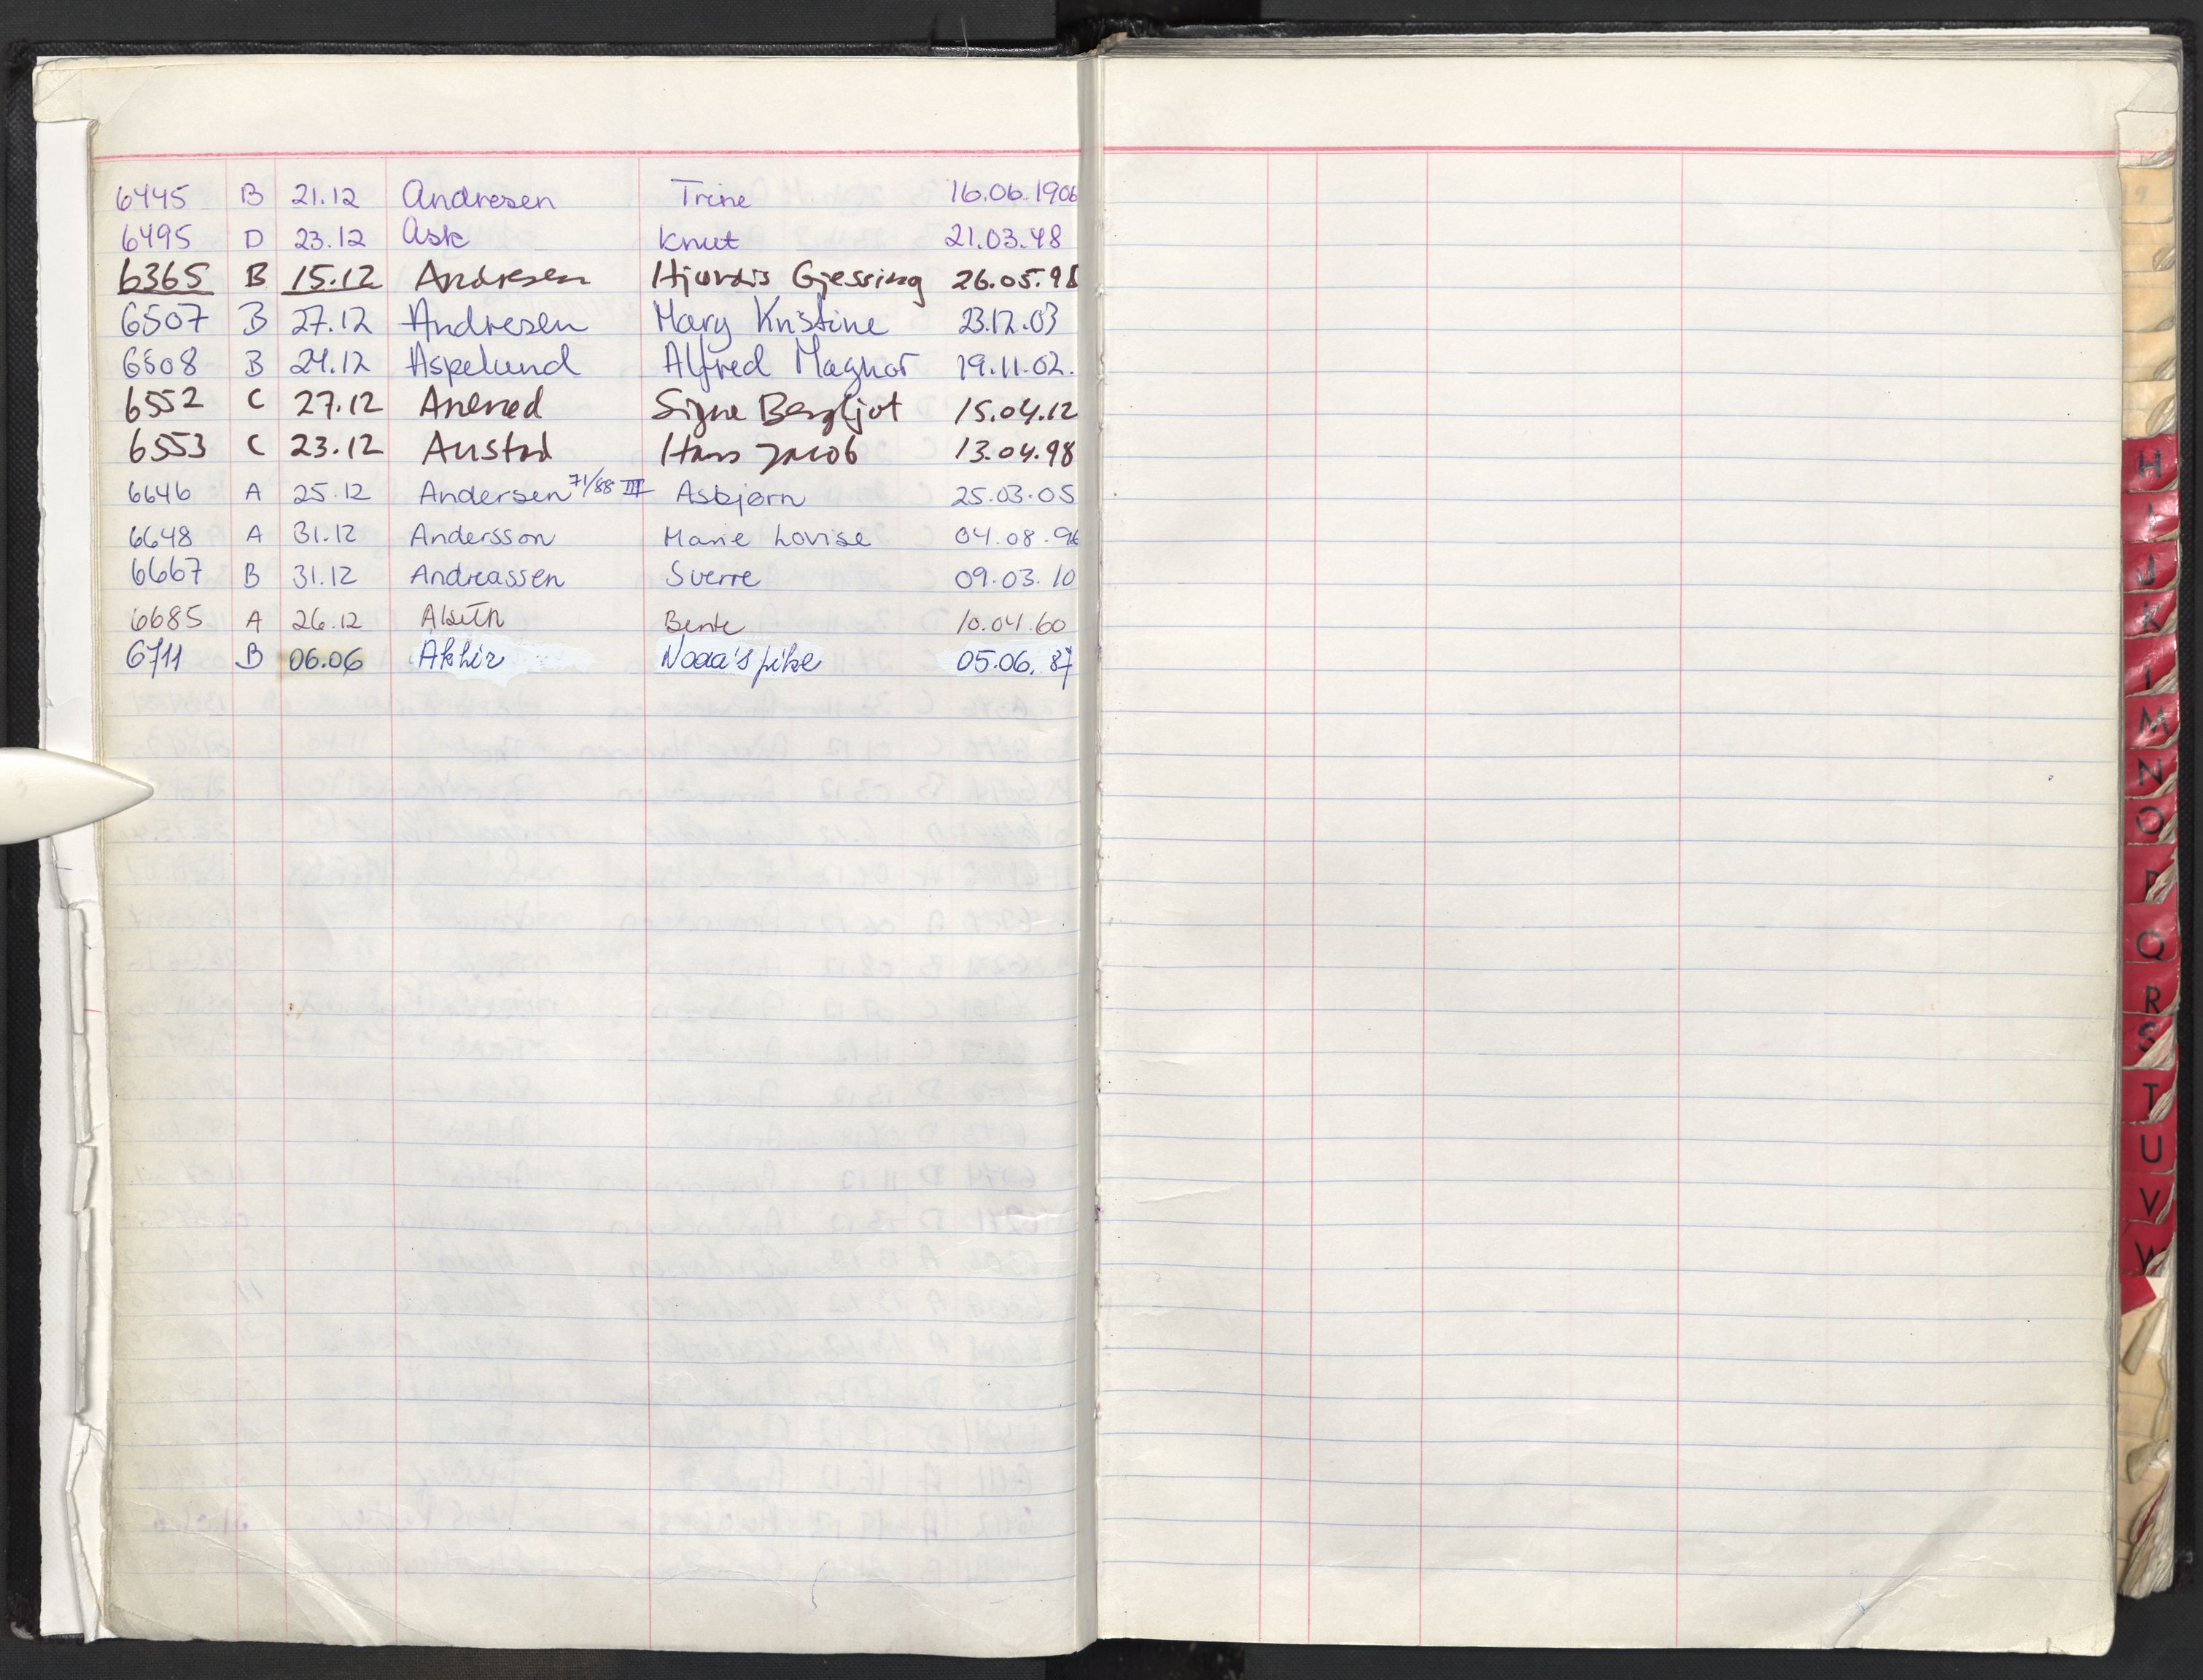 6445 B 21.12 Andresen Trine 16.06.1906
6495 D 23.12 Ask Knut 21.03.48
6365 B 15.12 Andresen Hjørdis Gjessing 26.05.98
6507 B 27.12 Andresen Mary Kristine 23.12.03
6508 B 24.12 Aspelund Alfred Magnor 19.11.02.
6552 C 27.12 Signe Bergljot 15.04.12
6553 C 23.12 Austad Hans Jacob 13.04.98
6646 A 25.12 Andersen 71/88 III Asbjørn 25.03.05
6648 A 31.12 Andersson Marie Lovise 04.08.96
6667 B 31.12 Andreassen Sverre 09.03.10
6685 A 26.12 Bente 10.04.60
6711 B 06.06 Akhir Noaa's pike 05.06.87
H
I
J
K
M
N
O
P
Q
R
S
T
U
V
W